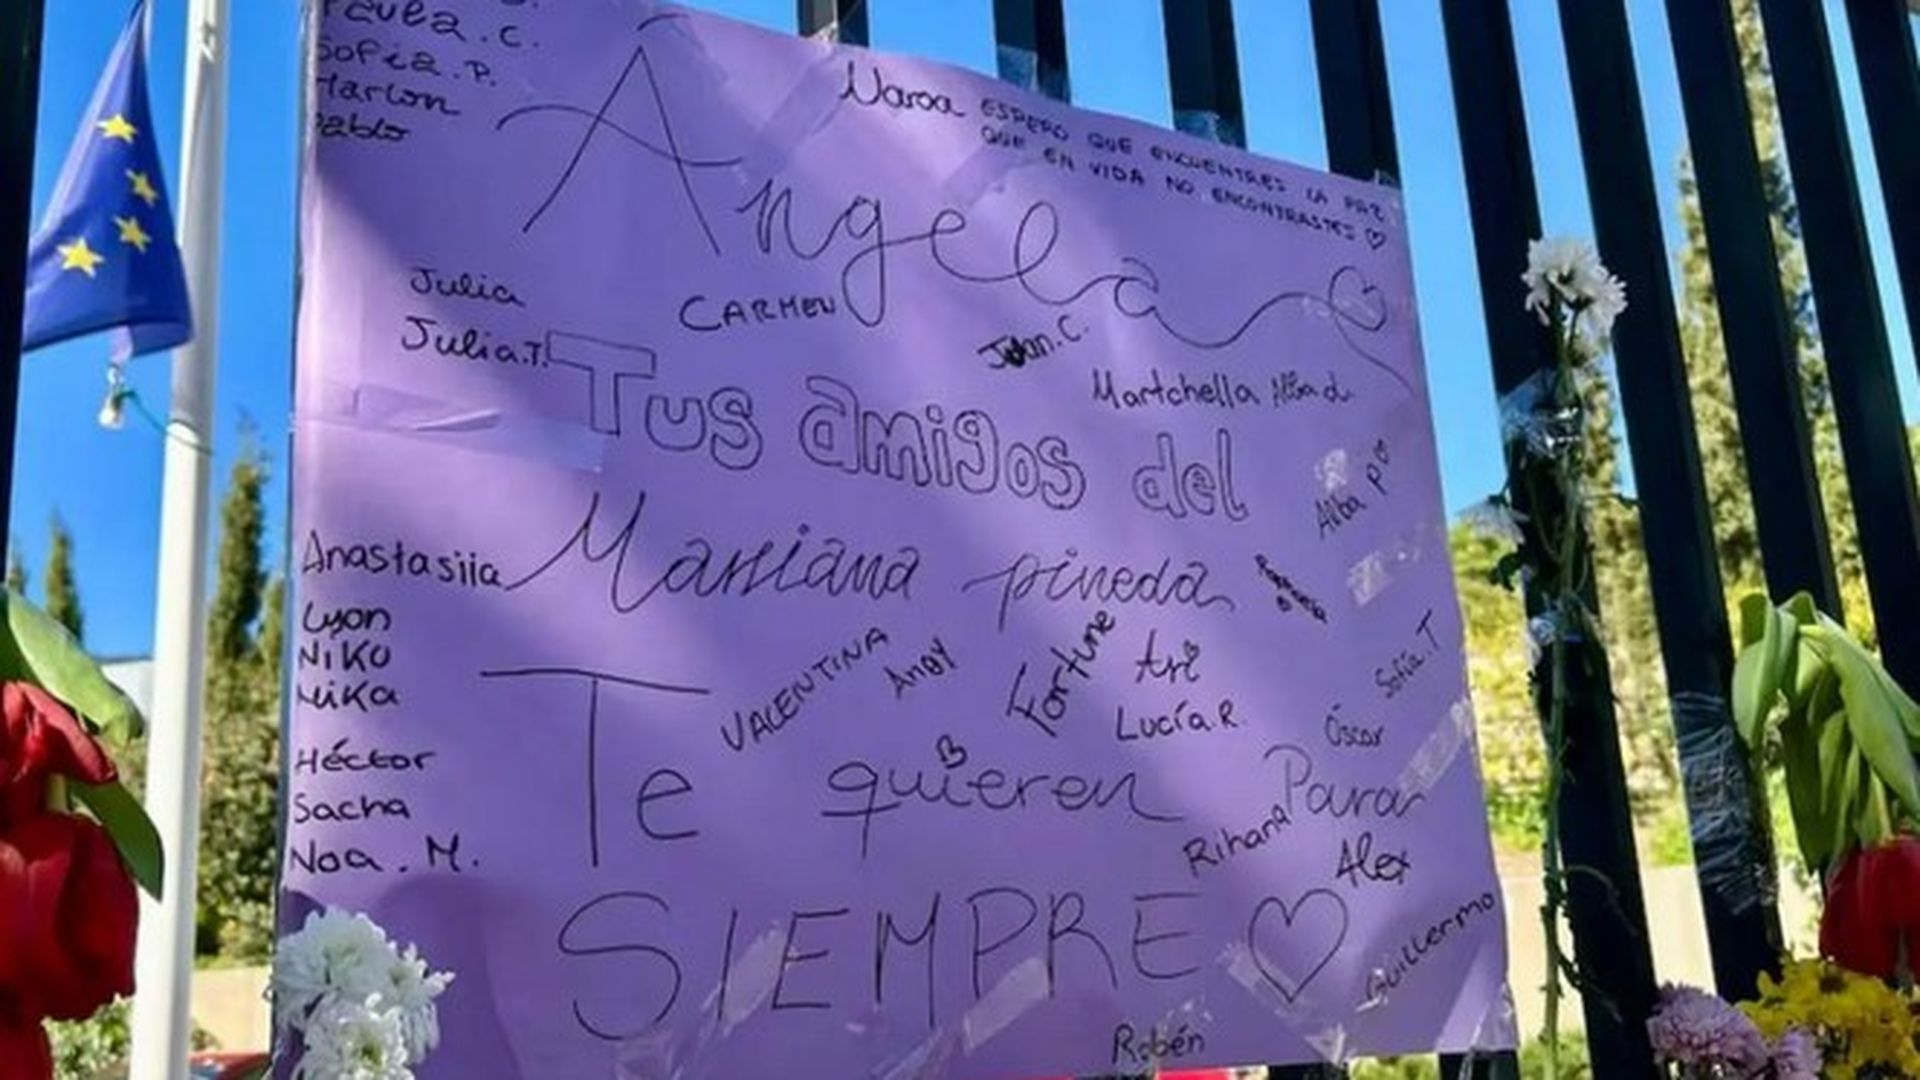 Paula . C.
Sofía . P.
Marlon
Pablo
Naroa
ESPERO QUE ENCUENTRES LA PAZ
QUE EN VIDA NO ENCONTRASTES
Ángela
Julia
Julia.T.
CARMEN
Juan.C.
Martchella
Alba d.
Tus amigos del
Alba P
Anastasiia
Mariana pineda
Lyon
NIKO
NiKa
VALENTINA
Andy
Fortune
Ari
Lucía.R.
Sofía.T
Óscar
Héctor
Sacha
Noa . M.
Te quieren Para
Rihana
Alex
SIEMPRE
Guillermo
Robén